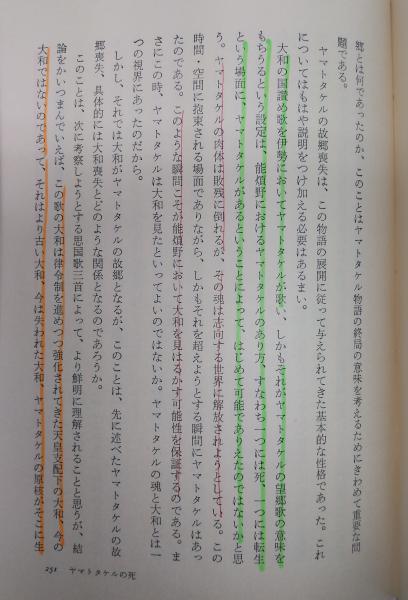 郷とは何であったのか、このことはヤマトタケル物語の終局の意味を考えるためにきわめて重要な問
題である。
ヤマトタケルの故郷喪失は、この物語の展開に従って与えられてきた基本的な性格であった。これ
についてはもはや説明をつけ加える必要はあるまい。
大和の国讃め歌を伊勢においてヤマトタケルが歌い、しかもそれがヤマトタケルの望郷歌の意味を
もちうるという設定は、能煩野におけるヤマトタケルのあり方、すなわち一つには死、一つには転生
という場面に、ヤマトタケルがあるということによって、はじめて可能でありえたのではないかと思
う。ヤマトタケルの肉体は敗残に倒れるが、その魂は志向する世界に解放されようとしている。この
時間・空間に拘束される場面でありながら、しかもそれを超えようとする瞬間にヤマトタケルはあっ
たのである。このような瞬間こそが能煩野において大和を見はるかす可能性を保証するのである。ま
さにこの時、ヤマトタケルは大和を見たといってよいのではないか。ヤマトタケルの魂と大和とは一
つの視界にあったのだから。
しかし、それでは大和がヤマトタケルの故郷となるが、このことは、先に述べたヤマトタケルの故
郷喪失、具体的には大和喪失とどのような関係となるのであろうか。
このことは、次に考察しようとする思国歌三首によって、より鮮明に理解されることと思うが、結
論をかいつまんでいえば、この歌の大和は律令制を進めつつ強化されてきた天皇支配下の大和、今の
大和ではないのであって、それはより古い大和、今は失われた大和、ヤマトタケルの原核がそこに生
251 ヤマトタケルの死